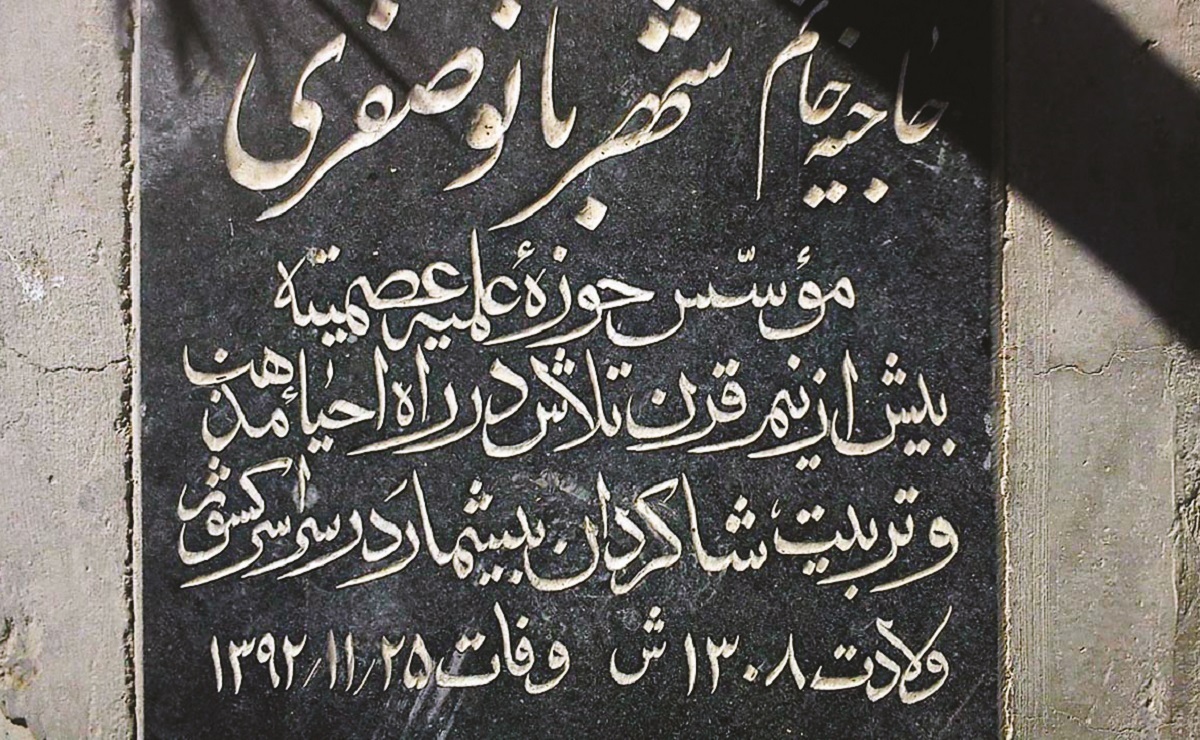 حاجیه خانم شهربانو صفری
مؤسّس حوزهٔ علمیه عصمتیه
بیش از نیم قرن تلاش در راه احیاء مذهب
و تربیت شاگردان بیشمار در سراسر کشور
ولادت ۱۳۰۸ ش وفات ۱۳۹۲/۱۱/۲۵